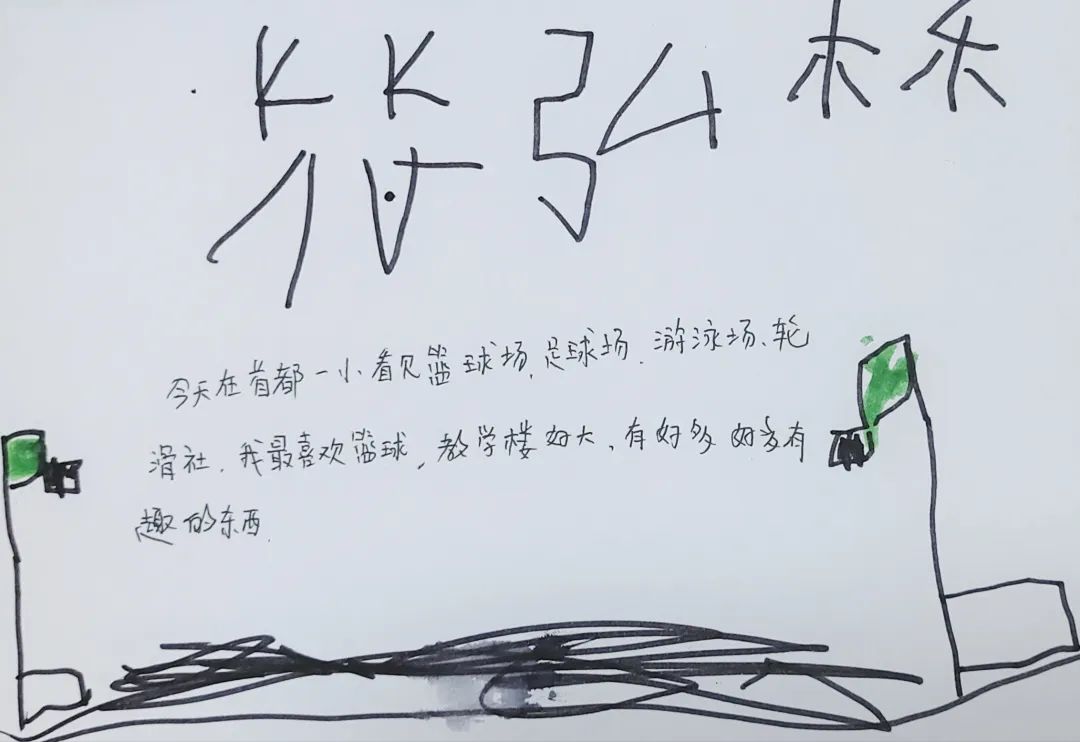 符弘林
今天在首都一小看见篮球场,足球场,游泳场、轮
滑社,我最喜欢篮球,教学楼好大,有好多好多有
趣的东西.